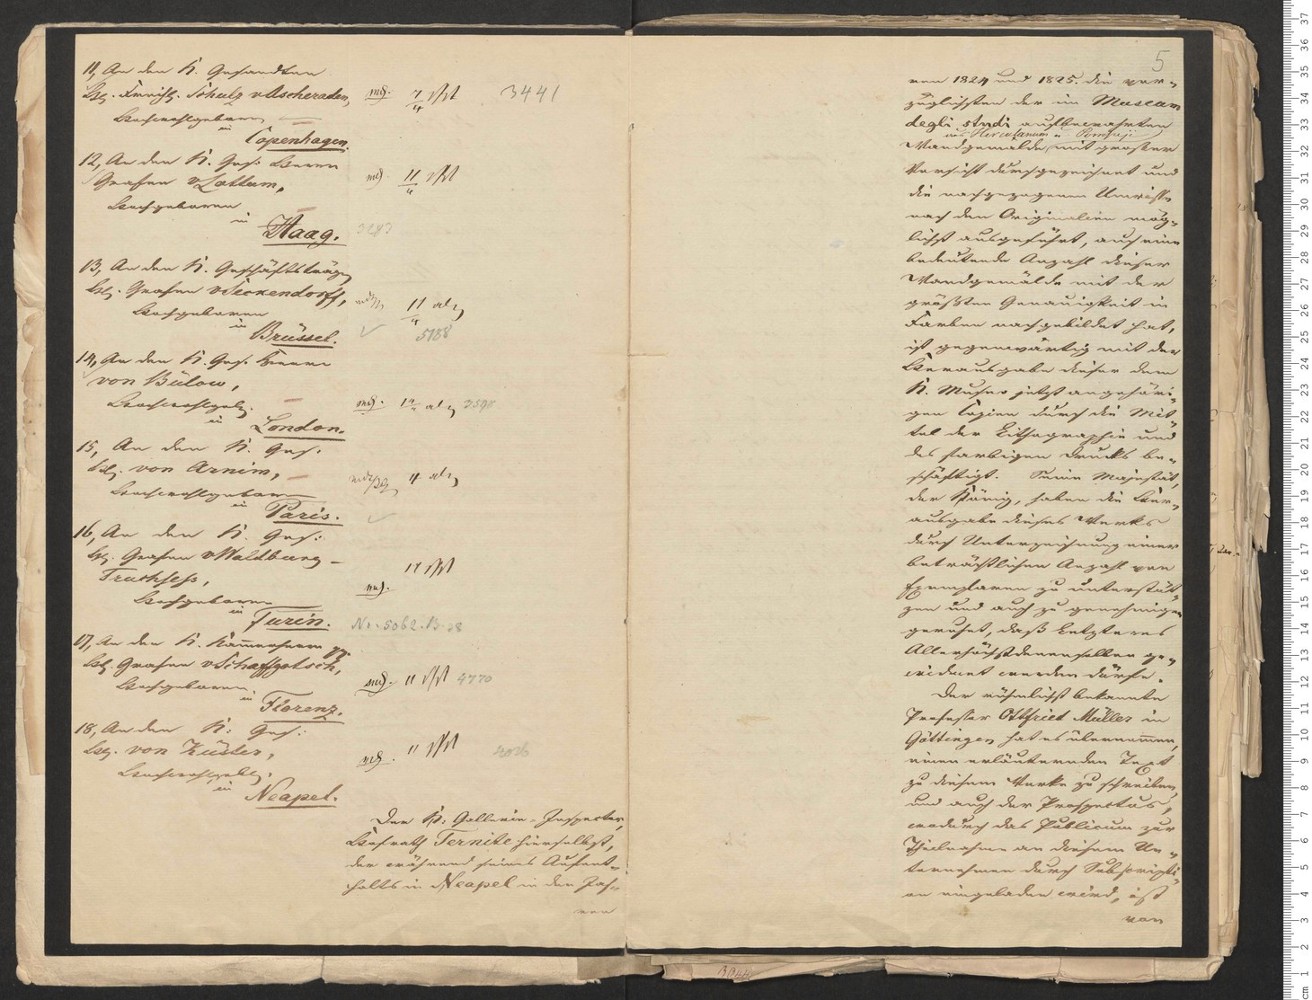 11, An den K. Gesandten
Hr. Freih. Schulz v Ascheraden,
Hochwohlgeboren
in
Copenhagen.
12, An den K. Ges. Herrn
Grafen v Lottum,
Hochgeboren
in
Haag.
13, An den K. Geschäftsträger
Hr. Grafen v Seckendorff,
Hochgeboren
in
Brüssel.
14, An den K. Ges. Herrn
von Bülow,
Hochwohlgeb.
in
London.
15, An den K. Ges.
Hr. von Arnim,
Hochwohlgeboren
in
Paris.
16, An den K. Ges:
Hr. Grafen v Waldburg-
Truchsess,
Hochgeboren
in
Turin.
17, An den K. Kammerherrn
Hr. Grafen v Schaffgotsch,
Hochgeboren
in
Florenz.
18, An den K. Ges:
Hr. von Küster,
Hochwohlgeb.
in
Neapel.
3441
5188
3591
No. 5062. B. 28
4770
4036
Der K. Gallerie-Inspector,
Hofrath Ternite hierselbst,
der während seines Aufent-
halts in Neapel in den Jah-
ren
5
ren 1824 und 1825. die vor-
züglichsten der im Museum
degli studi aufbewahrten
aus Herculanum u Pompeji
Wandgemälde, mit großer
Vorsicht durchgezeichnet und
die nachgezogenen Umrisse
nach den Originalien mög-
lichst ausgeführt, auch eine
bedeutende Anzahl dieser
Wandgemälde mit der
größten Genauigkeit in
Farben nachgebildet hat,
ist gegenwärtig mit der
Herausgabe dieser dem
K. Museo jetzt angehöri-
gen Copien durch die Mit-
tel der Lithographie und
des farbigen Drucks be-
schäftigt. Seine Majestät,
der König, haben die Her-
ausgabe dieses Werks
durch Unterzeichnung einer
beträchtlichen Anzahl von
Exemplaren zu unterstüt-
zen und auch zu genehmigen
geruhet, daß letzteres
Allerhöchstdenenselben ge-
widmet werden dürfe.
Der rühmlichst bekannte
Professor Ottfried Müller in
Göttingen hat es übernommen,
einen erläuternden Text
zu diesem Werke zu schreiben,
und auch der Prospectus,
wodurch das Publicum zur
Theilnahme an diesem Un-
ternehmen durch Subscripti-
on eingeladen wird, ist
von